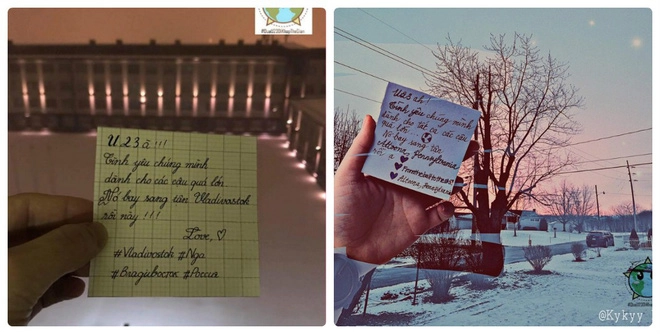 U 23 à !!!
Tình yêu chúng mình
dành cho các cậu quá lớn
Nó bay sang tận Vladivostok
rồi này !!!
Love, ♡
#Vladivostok #Nga
#Владивосток #Россия
U23 ah!
Tình yêu chúng mình
dành cho tất cả các cậu
quá lớn
Nó bay sang tận
Altoona Pennsylvania
rồi ạ
Altoona, Pennsylvania
@Kykyy